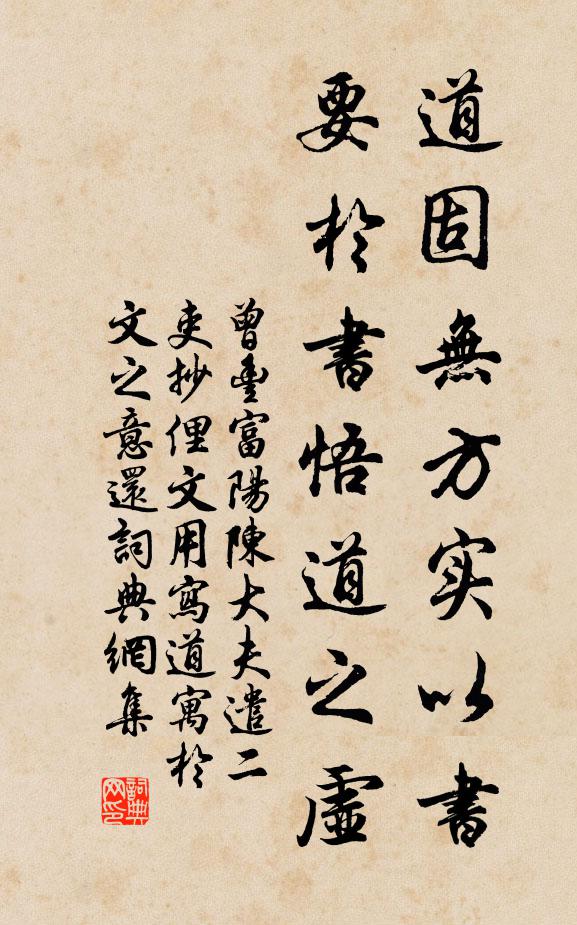 道固無方实以書
要於書悟道之虛
曾豊富陽陳大夫遣二
吏抄俚文用寫道寓於
文之意還詞典網集
詞典网印